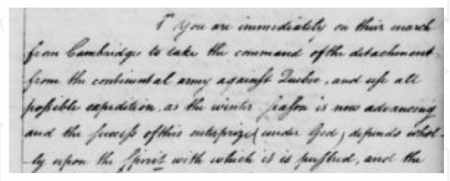 1st You are immediately on their march
from Cambridge to take the command of the detachment
from the continental army against Quebec, and use all
possible expedition, as the winter season is now advancing
and the success of this enterprize (under God) depends whol-
ly upon the spirit with which it is pushed, and the